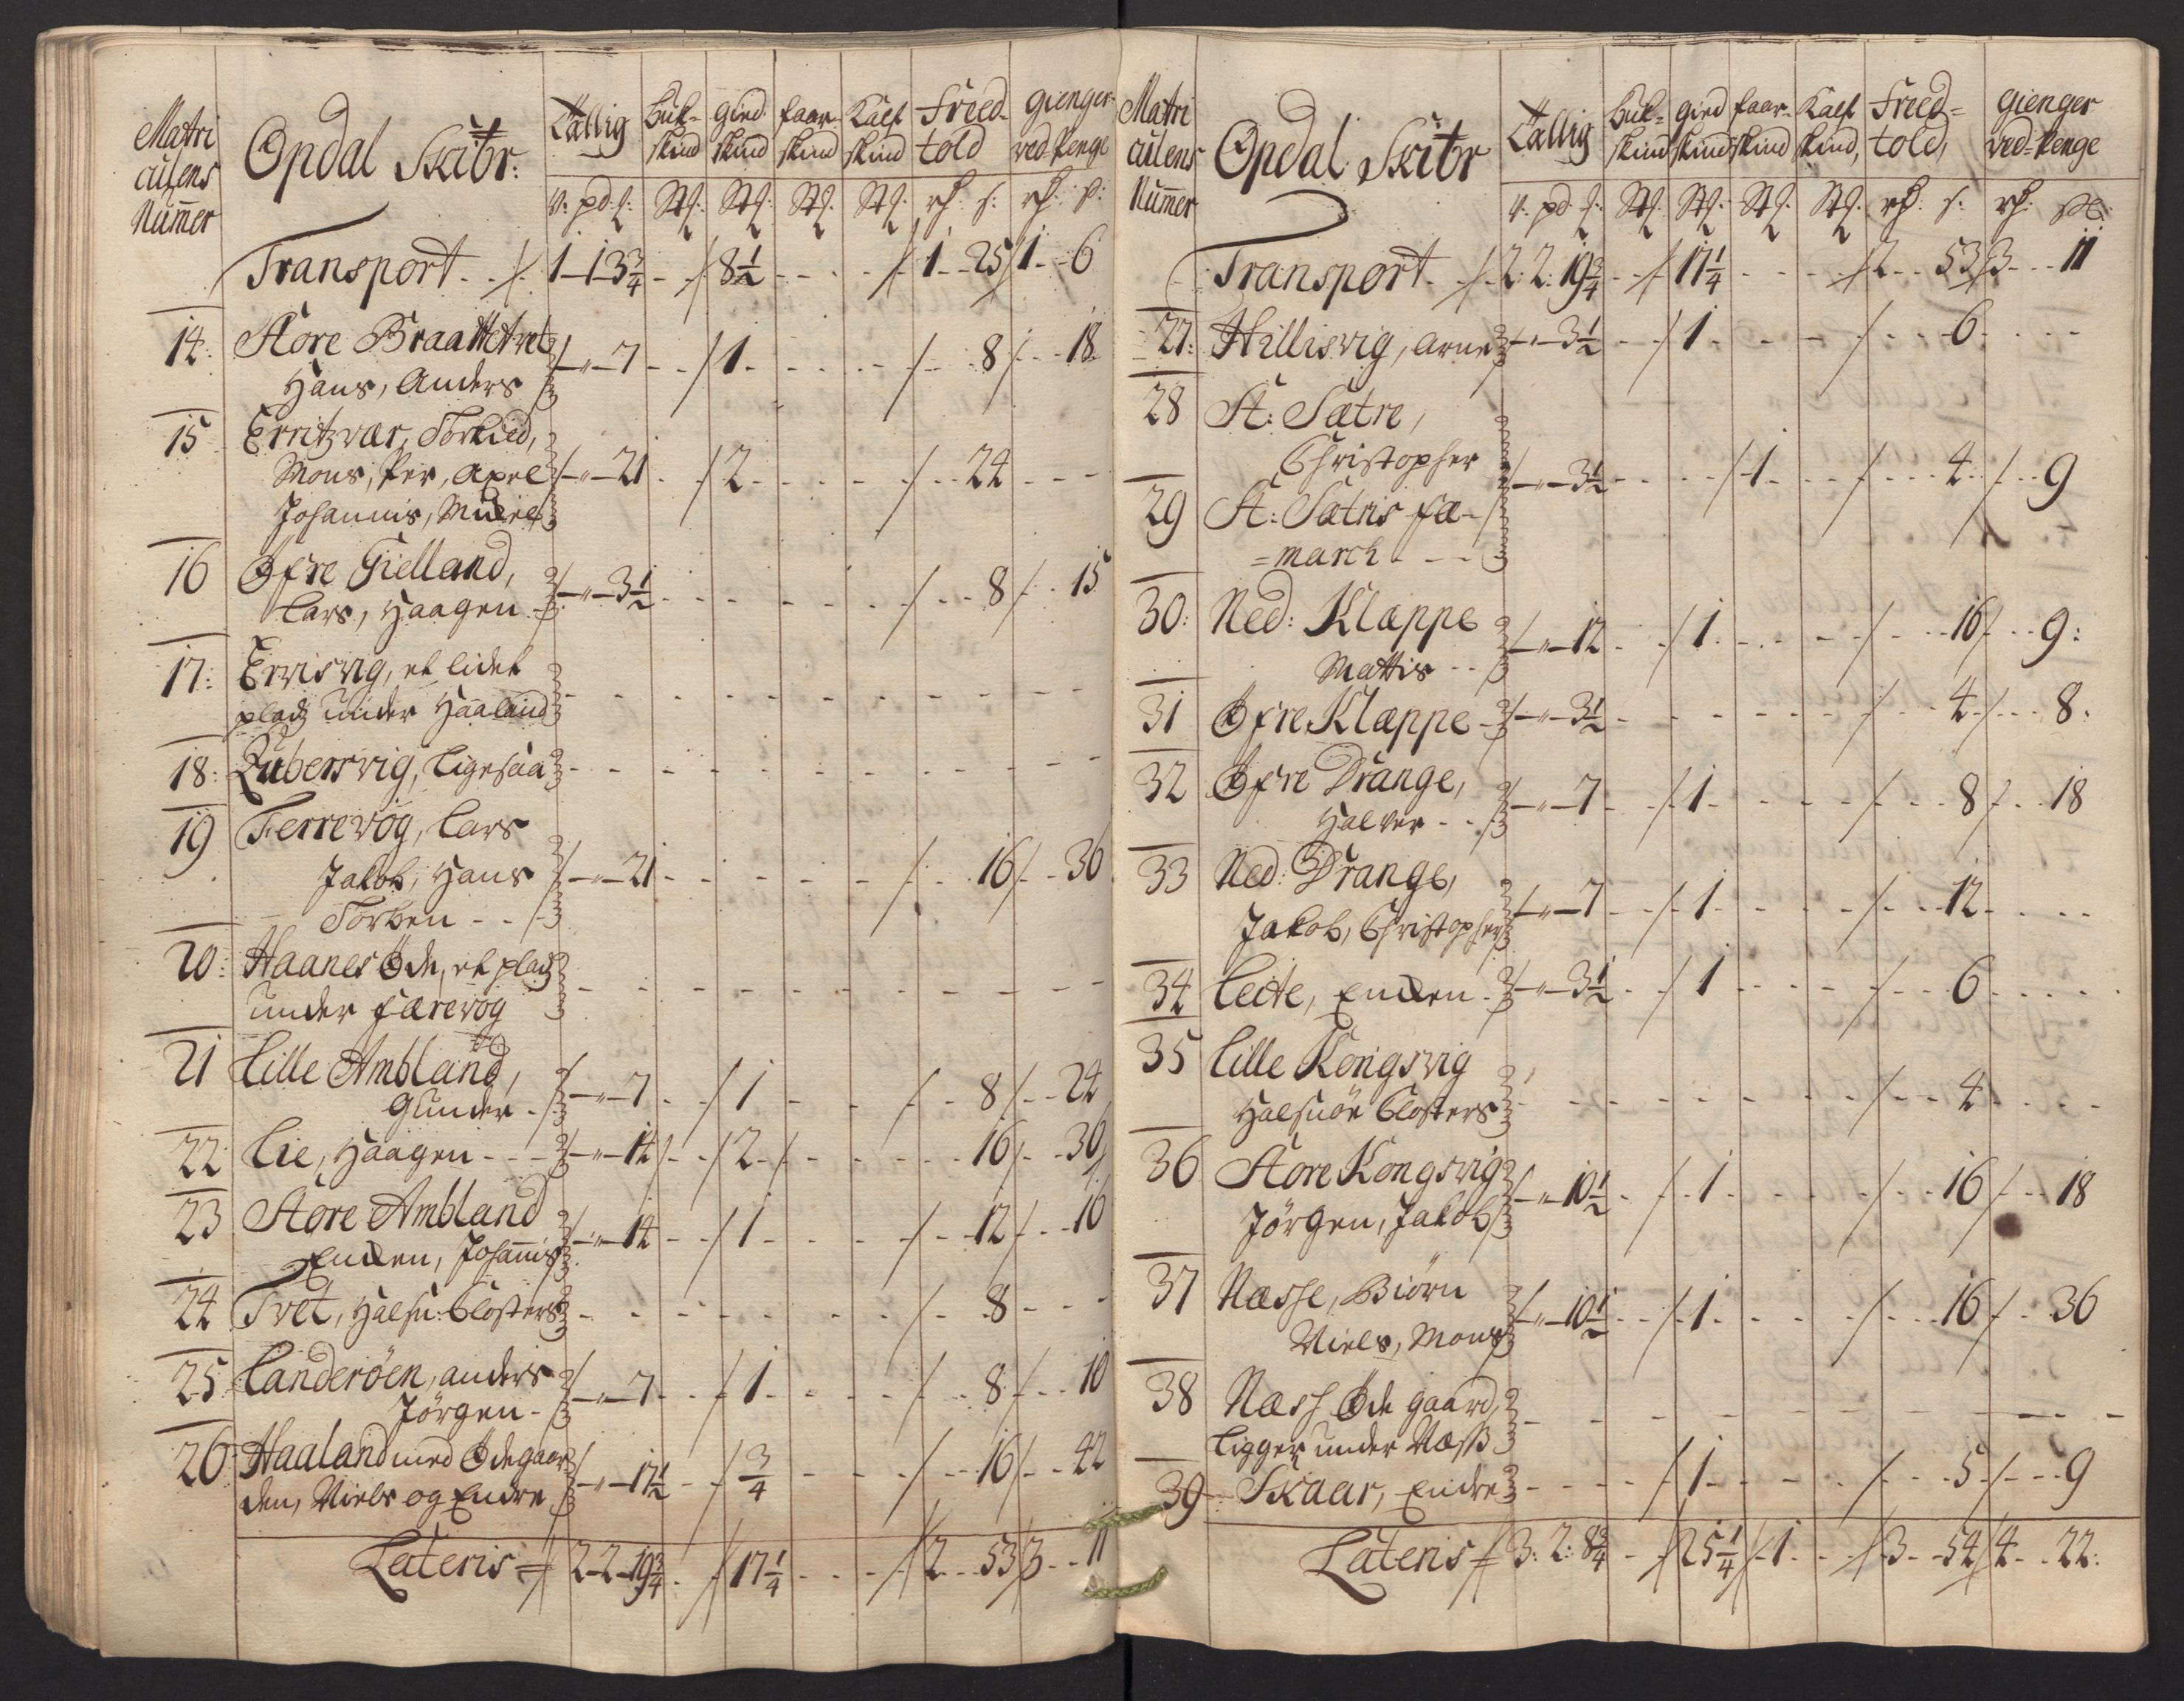 Matri
culens
Num̄er
Opdal Skibr:
Tallig
Buk-
skind
gied
skind
faar
skind
Kalf
skind
Freed-
told
gienger-
ved Penge
v: pd: ℔:
St:
St:
St:
St:
rd: s:
rd: s:
Transport - - 1-13¾ - 8½ - - - 1 - 25 1 - 6
14: Store Braattetvet
Hans, Anders - 7 - 1 - - - 8 - 18
15 Erritzvær, Torkied,
Mons, Per, Axel - 21 - 2 - - - 24 - - -
Johannis,
16 Øfre Gielland,
Lars, Haagen - 3½ - - - - 8 - 15
17: Ervisvig, et lidet
pladz under Haaland - - - - - -
18: Lubersvig, ligesaa - - - - - -
19 Ferrevog, Lars
Jakob, Hans - 21 - - - - 16 - 36
Torben - -
20: Haanes Øde, et pladz
under Færevog - - - - - -
21 Lille Ambland,
Gunder - - 7 - 1 - - - 8 - 24
22 Lie, Haagen - - - 14 - 2 - - - 16 - 30
23 Store Ambland
Enden, Johannis - 14 - 1 - - - 12 - 16
24 Tvet, Halsn: Closters - - - - - 8 - - -
25 Landeröen, anders
Jörgen - - 7 - 1 - - - 8 - 10
26 Haaland med Ødegaar
den, Niels og Endre - 17½ - ¾ - - - 16 - 42
Lateris 2-2-19¾ - 17¼ - - - 2 - 53 3 - 11
Matri
culens
Num̄er
Opdal Skibr
Tallig
Buk-
skind
gied
skind
faar-
skind
Kalf
skind,
Freed-
told,
gienger
ved-Penge
v: pd ℔:
St:
St:
St:
St:
rd: s:
rd: s:
Transport - 2: 2: 19¾ - 17¼ - - - 2 - 53 3 - - 11
27: Hillisvig, Arne - 3½ - 1 - - - 6 - - -
28 St: Sætre,
Christopher - 3½ - - - 1 - - - 4 - 9
29 St: Sætris fæ-
=march - - -
30: Ned: Klæppe
Mattis - - - 12 - 1 - - - 16 - 9:
31 Øfre Klæppe - 3½ - - - - 4 - 8:
32 Øfre Drange,
Halver - - - 7 - 1 - - - 8 - 18
33 Ned: Drange,
Jakob, Christopher - 7 - 1 - - - 12 - - -
34 Leite, Enden - 3½ - 1 - - - 6 - - -
35 Lille Kongsvig
Halsnöe Closters - - - - - 4 - - -
36 Store Kongsvig
Jörgen, Jakob - 10½ - 1 - - - 16 - 18
37 Næsse, Biörn
Niels, Mons - 10½ - 1 - - - 16 - 36
38 Næss Øde gaard,
Ligger under Næss - - - - - -
39 Skaar, Endre - - - 1 - - - 5 - 9
Lateris 3: 2: 8¾ - 25¼ - 1 - - 3 - 54 4 - 22: